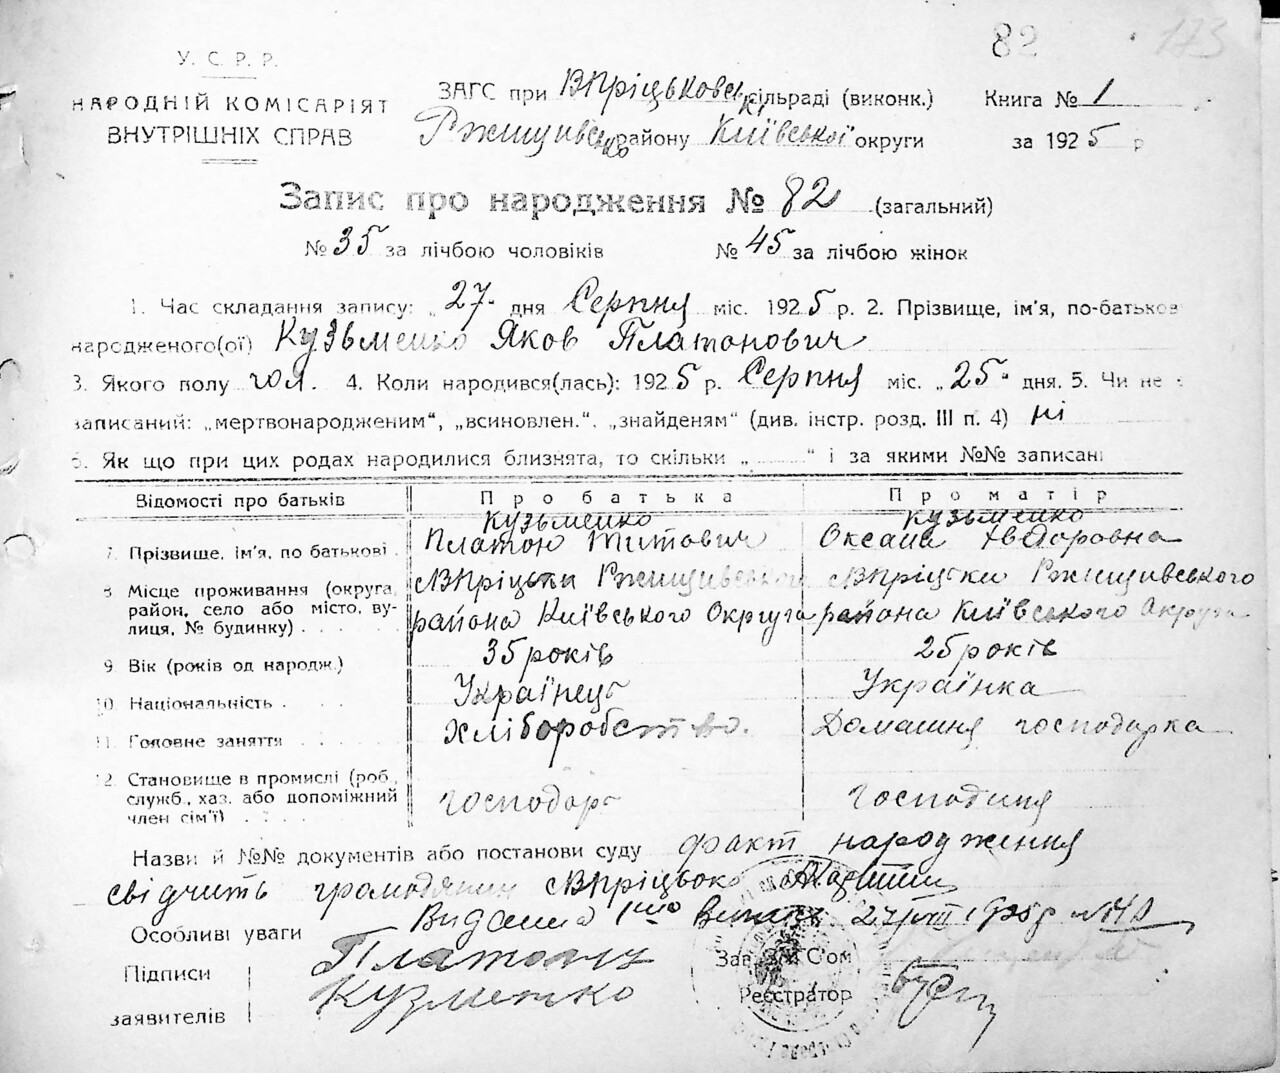 82 173
У. С. Р. Р.
НАРОДНІЙ КОМІСАРІЯТ
ВНУТРІШНІХ СПРАВ
ЗАГС при ВПріцьковськ. сільраді (виконк.) Книга № 1
Ржищивсько району Київської округи за 1925 р
Запис про народження № 82 (загальний)
№ 35 за лічбою чоловіків № 45 за лічбою жінок
1. Час складання запису: „27" дня Серпня міс. 1925 р. 2. Прізвище, ім'я, по-батькові
народженого(ої) Кузьменко Яков Платонович
3. Якого полу чол. 4. Коли народився(лась): 1925 р. Серпня міс. „25" дня. 5. Чи не
записаний: „мертвонародженим", „всиновлен.", „знайденям" (див. інстр. розд. III п. 4) ні
6. Як що при цих родах народилися близнята, то скільки „ " і за якими №№ записані
Відомості про батьків Про батька Про матір
Кузьменко Кузьменко
7. Прізвище, ім'я, по батькові Платон Титович Оксана Хведоровна
8 Місце проживання (округа, сВПріцьки Ржищивського сВПріцьки Ржищивського
район, село або місто, ву- района Київського Округа района Київського Округа
лиця, № будинку)
9. Вік (років од народж.) 35 років 25 років
10. Національність Українець Українка
11. Головне заняття Хліборобство. Домашня господарка
12. Становище в промислі (роб.,
служб., хаз. або допоміжний господарь господиня
член сім'ї)
Назви й №№ документів або постанови суду факт народження
свідчить громодянин сВПріцьок
Видана 1925 р №
Особливі уваги
Підписи Платон Зав. ЗАГС'ом
заявителів Кузменко Реєстратор